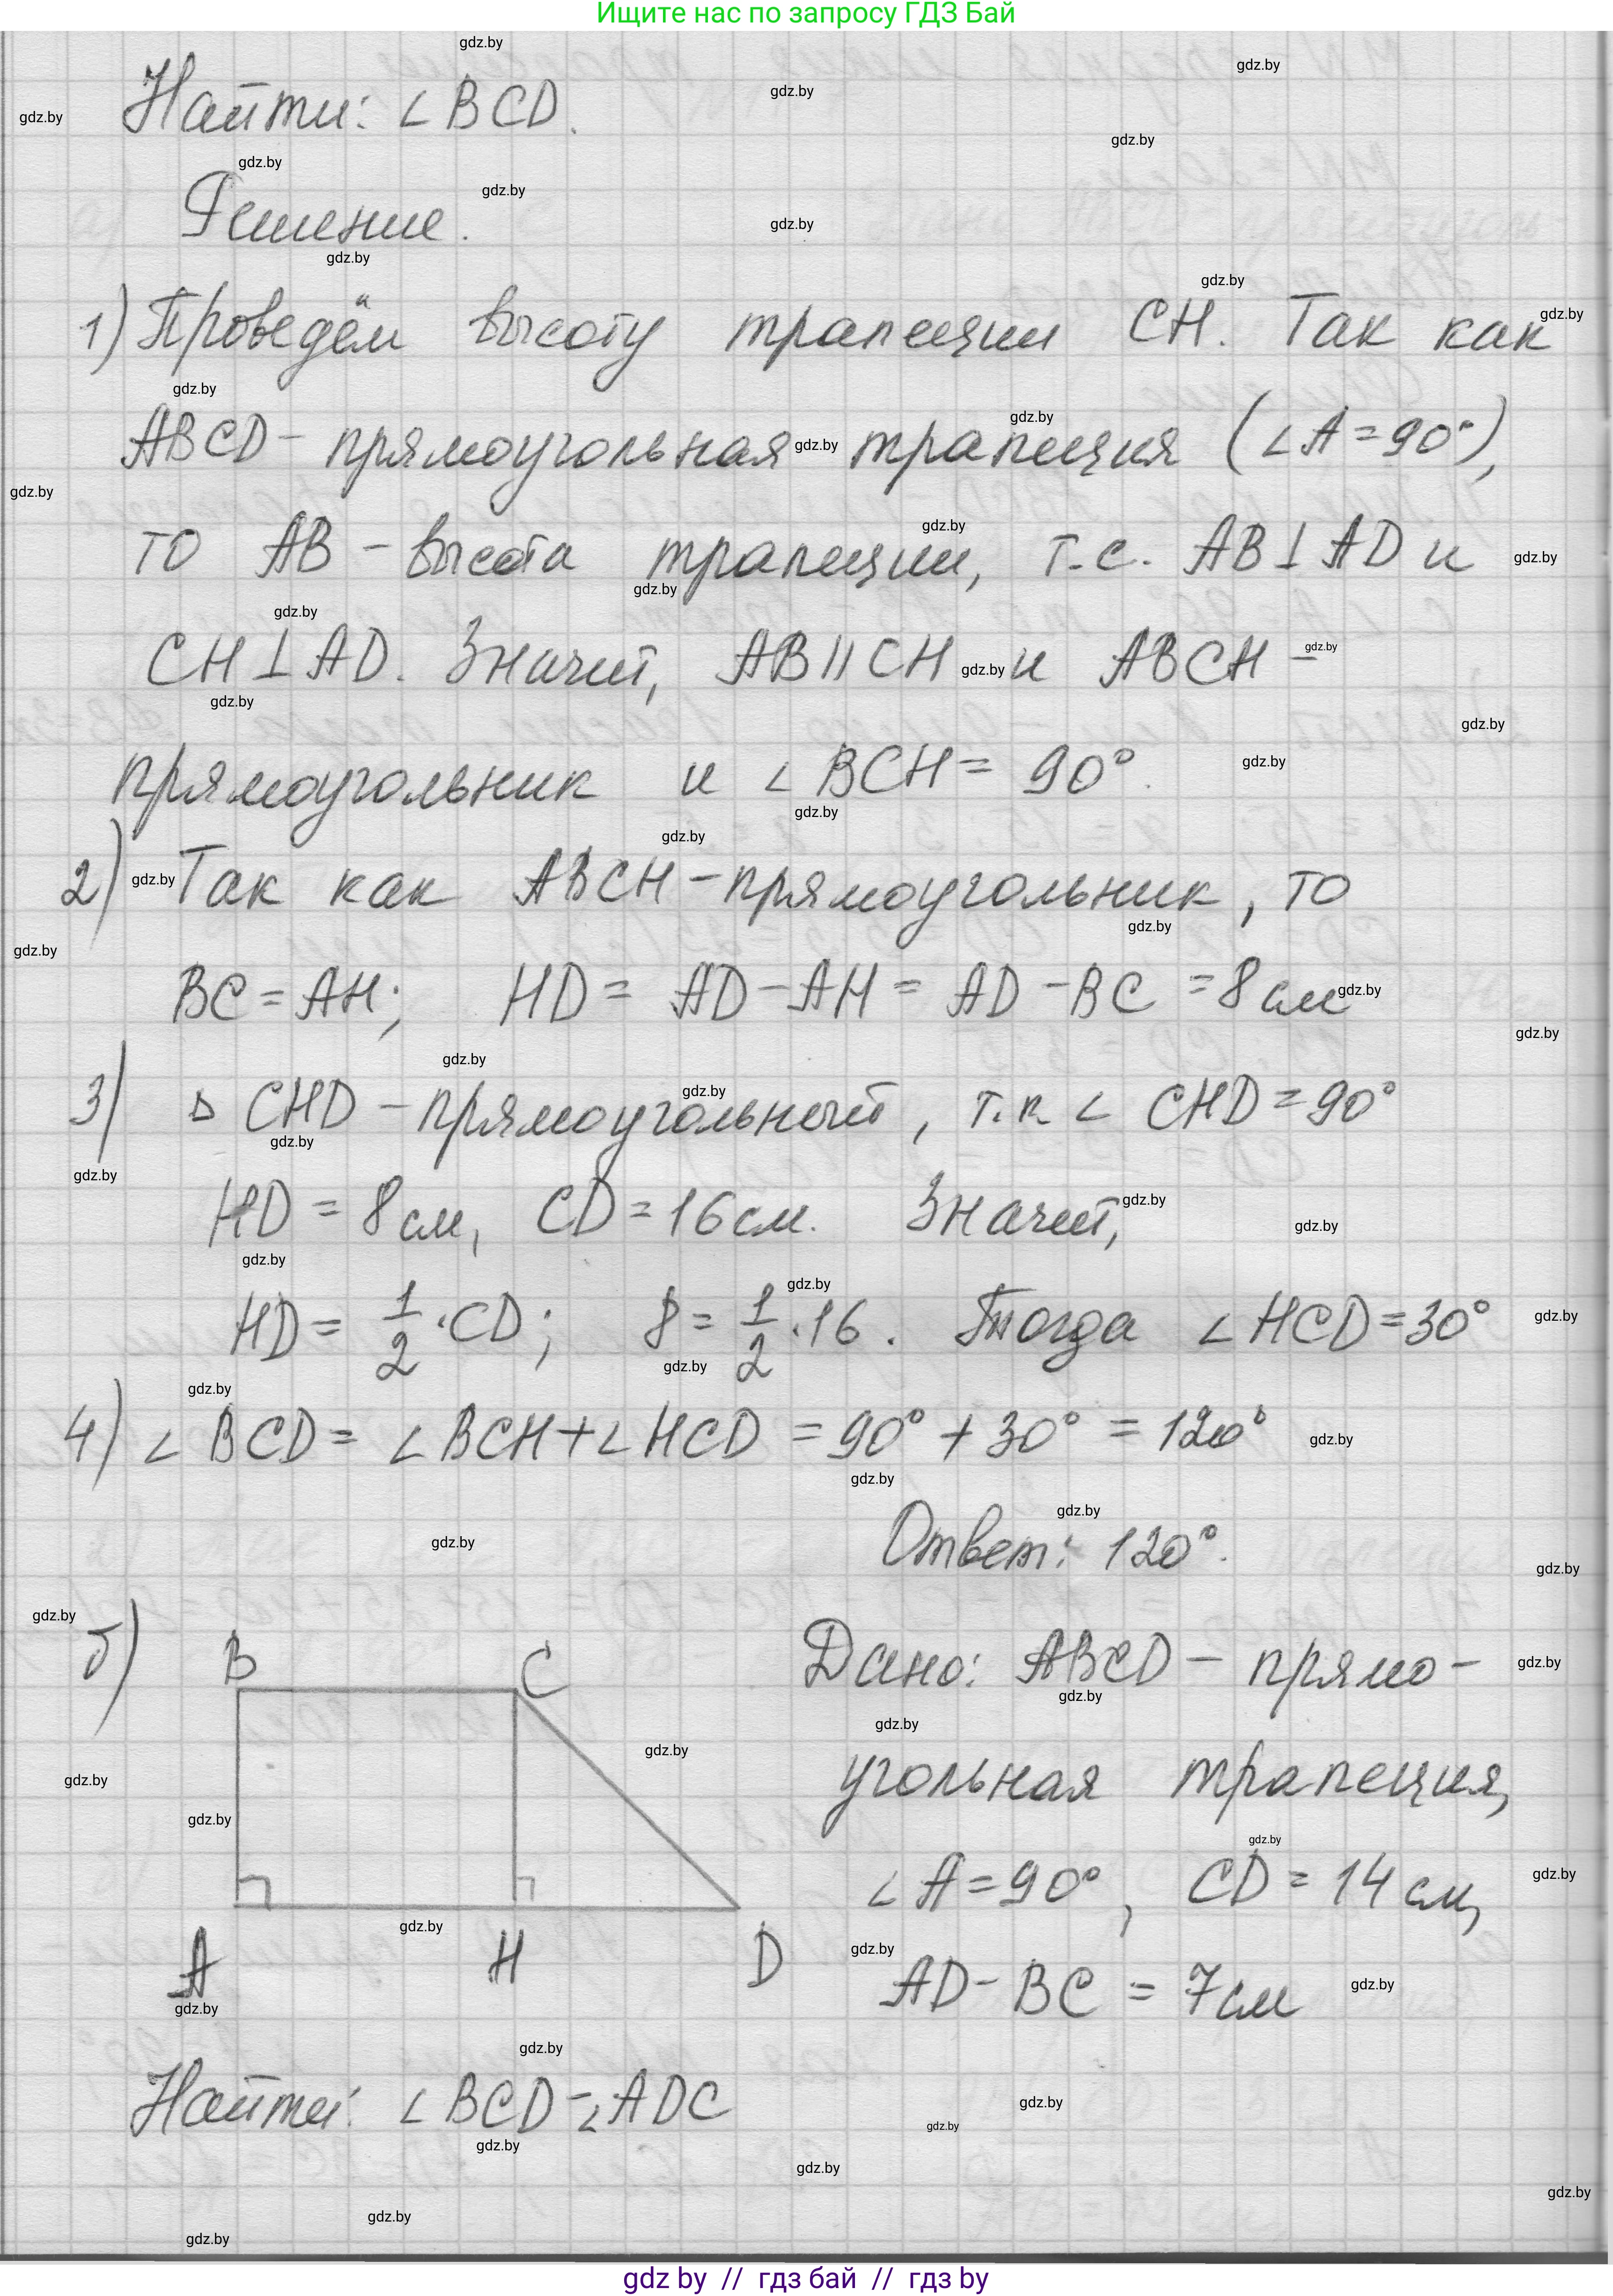 Ищите нас по запросу ГДЗ Бай
Найти: ∠BCD.
Решение.
1) Проведём высоту трапеции CH. Так как
ABCD – прямоугольная трапеция (∠A = 90°),
то AB – высота трапеции, т.е. AB ⊥ AD и
CH ⊥ AD. Значит, AB || CH и ABCH –
прямоугольник и ∠BCH = 90°.
2) Так как ABCH – прямоугольник, то
BC = AH; HD = AD – AH = AD – BC = 8 см
3) △ CHD – прямоугольный, т.к ∠ CHD = 90°
HD = 8 см, CD = 16 см. Значит,
HD = 1/2 · CD; 8 = 1/2 · 16. Тогда ∠HCD = 30°
4) ∠BCD = ∠BCH + ∠HCD = 90° + 30° = 120°
Ответ: 120°.
б)
B C
A H D
Дано: ABCD – прямо–
угольная трапеция,
∠A = 90°, CD = 14 см,
AD – BC = 7 см
Найти: ∠BCD – ∠ADC
gdz by // гдз бай // гдз by